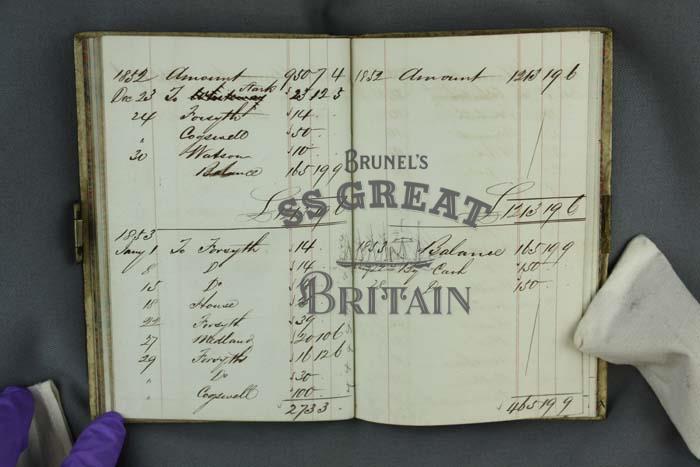 1852 Amount 950 7 4
Dec 23 To Stark 23 12 5
24 Forsyth 14
" Cogswell 50
30 Watson 10
Balance 165 19 9
1853
Jany 1 To Forsyth 14
8 Do 14
15 Do
18 House
22 Forsyth 39
27 Medland 20 10 6
29 Forsyth 16 12 6
" Do 30
" Cogswell 100
273 3
1852 Amount 1213 19 6
£1213 19 6
1853 Balance 165 19 9
By Cash 150
28 150
£465 19 9
BRUNEL'S
SS GREAT
BRITAIN